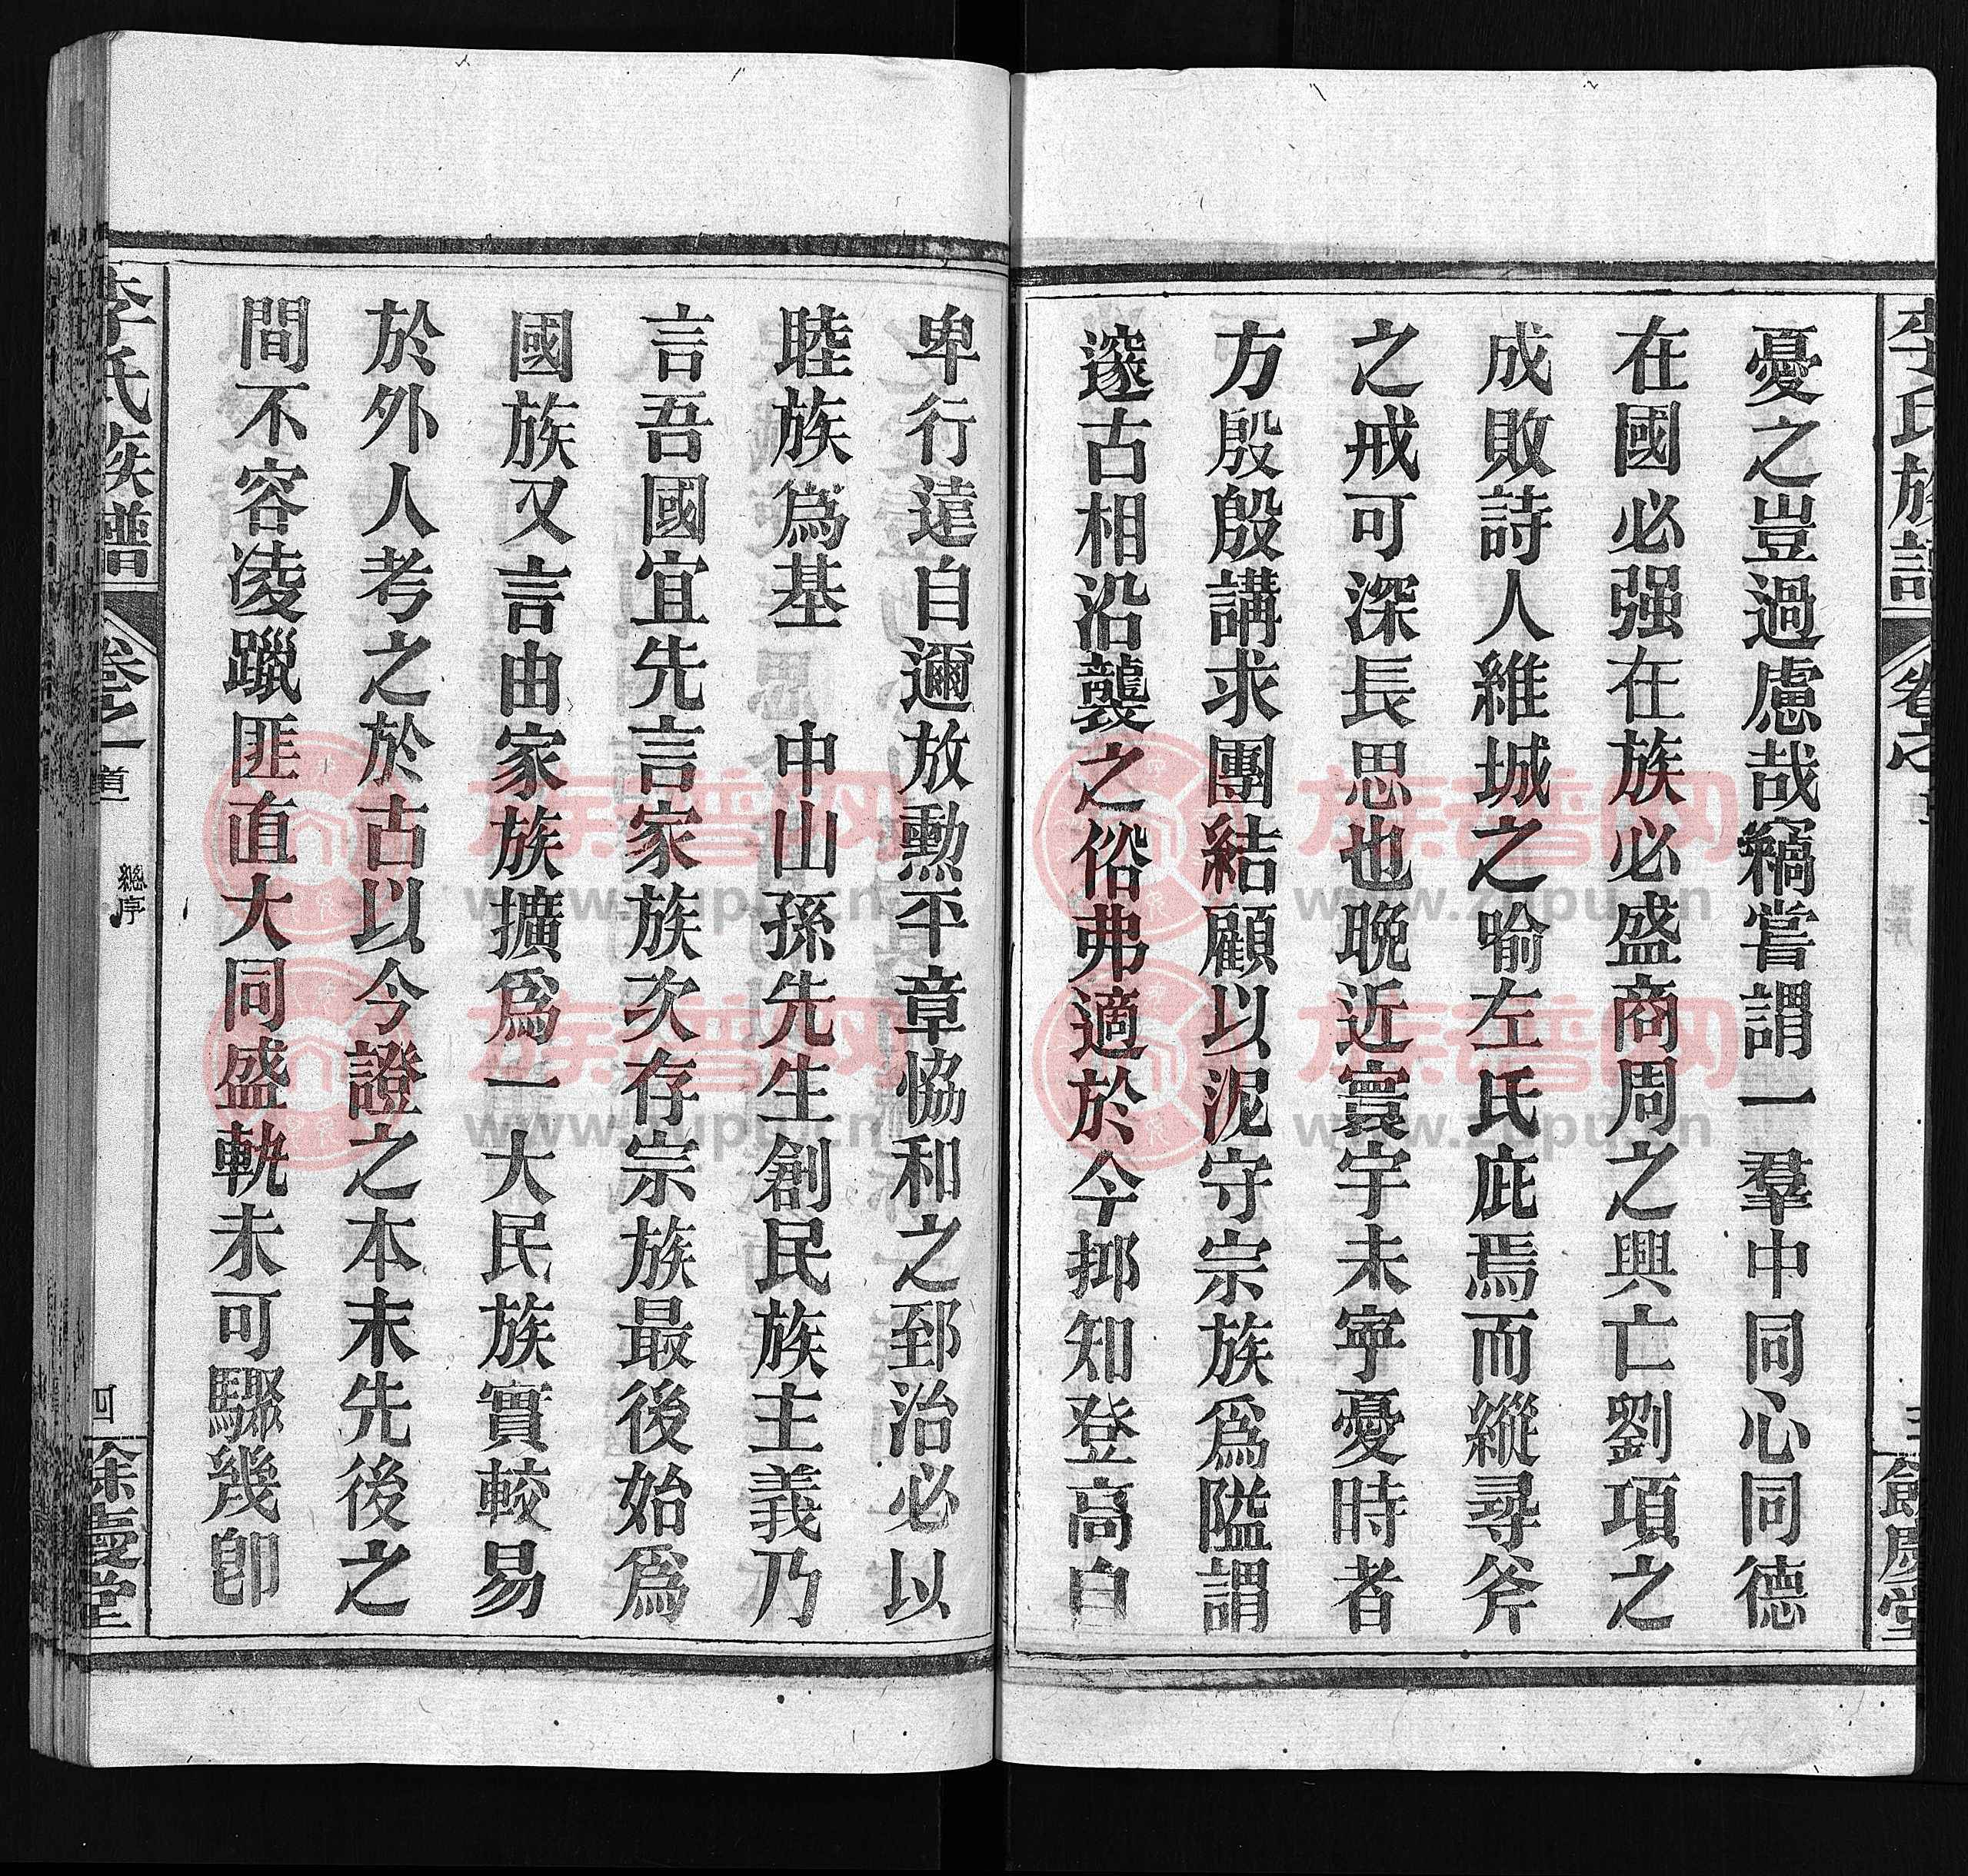 李氏族譜
憂之豈過慮哉竊嘗謂一羣中同心同德
在國必强在族必盛商周之興亡劉項之
成敗詩人維城之喻左氏庇焉而縱尋斧
之戒可深長思也晚近寰宇未寧憂時者
方殷殷講求團結顧以泥守宗族爲隘謂
邃古相沿襲之俗弗適於今抑知登高自
卑行遠自邇放勲平章恊和之郅治必以
睦族爲基　中山孫先生創民族主義乃
言吾國宜先言家族次存宗族最後始爲
國族又言由家族擴爲一大民族實較易
於外人考之於古以今證之本末先後之
間不容凌躐匪直大同盛軌未可驟幾卽
李氏族譜
卷之一
道
總序
四
餘慶堂
族譜网
www.zupu.cn
族譜网
www.zupu.cn
族譜网
www.zupu.cn
族譜网
www.zupu.cn